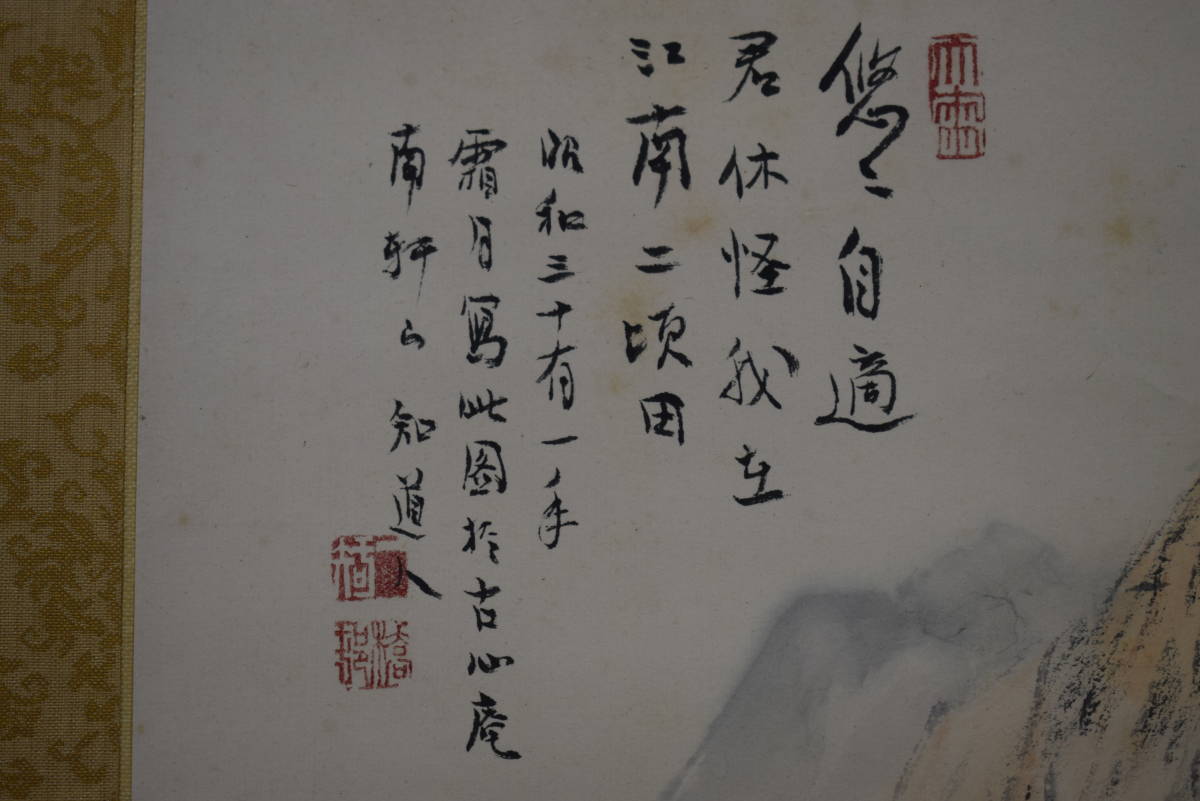 悠〻自適
君休怪我在
江南二頃田
昭和三十有一年
霜月写此図於古心庵
南軒 知道人